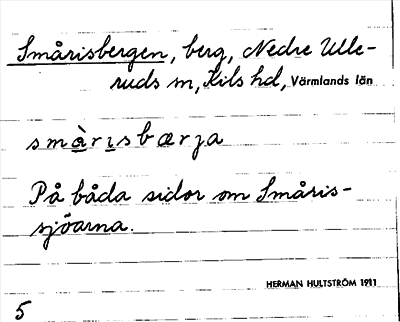 Smårisbergen, berg, Nedre Ulle-
ruds sn, Kils hd, Värmlands län
smàrisbærja
På båda sidor om Småris-
sjöarna.
HERMAN HULTSTRÖM 1911
5